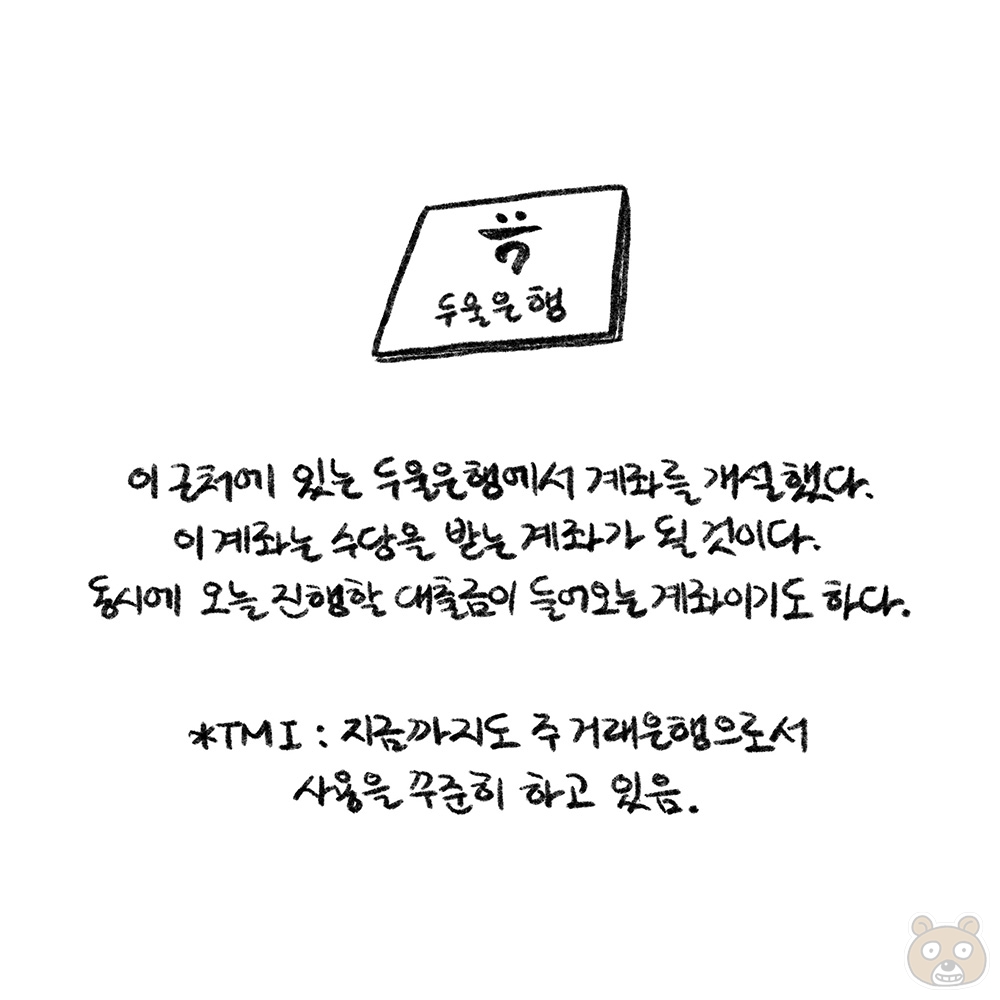 두울은행
이 근처에 있는 두울은행에서 계좌를 개설했다.
이 계좌는 수당을 받는 계좌가 될 것이다.
동시에 오늘 진행할 대출금이 들어오는 계좌이기도 하다.
*TMI : 지금까지도 주 거래은행으로서
사용을 꾸준히 하고 있음.